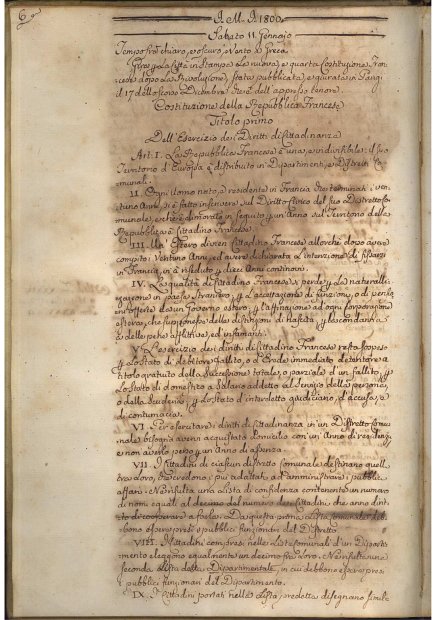 A. M. A 1800
Sabato 11 Gennajo
Tempo frà chiaro, e oscuro, e Vento a Greca
Girò per la Città in stampa La nuova, e quarta Costituzione Fran
cese dopo La Rivoluzione, stata pubblicata, e giurata in Parigi
il 17 dello scorso Dicembre, ed è dell'appresso tenore
Costituzione della Repubblica Francese
Titolo primo
Dell'Esercizio dei Diritti di Cittadinanza
Art: I. La Repubblica Francese è una, e indivisibile: il suo
Territorio d'Europa è distribuito in Dipartimenti, e Distretti Co
munali:
II. Ogni Uomo nato, e residente in Francia che terminati i ven
tuno Anni, si è fatto inscrivere sul Diritto Civico del suo Distretto Co
munale, e che è dimorato in seguito per un Anno sul Territorio della
Repubblica è Cittadino Francese
III. Un Estero divien Cittadino Francese allorchè dopo avere
compiti Ventuno Anni, ed avere dichiarata L'intenzione di fissarsi
in Francia, vi è risieduto per dieci Anni continovi.
IV. La qualità di Cittadino Francese si perde per La naturaliz
zazione in paese straniero, per L'accettazione di funzioni, o di pensioni
offerte da un Governo estero; per L'affiliazione ad ogni Corporazione
estera, che supponesse delle distinzioni di Nascita, per la condanna
a delle pene afflittive, ed infamanti.
V. L'esercizio dei diritti di Cittadino Francese resta sospeso
per Lo stato di debitore fallito, o d'Erede immediato detentore a
titolo gratuito della Successione totale, o parziale d'un fallito, per
Lo stato di domestico a Salario addetto al Servizio della persona,
o della Scuderia, per Lo stato d'interdetto giudiciario, d'accusa, e
di contumacia.
VI. Per esercitare i diritti di Cittadinanza in un Distretto Comu
nale bisogna avervi acquistato domicilio con un Anno di residenza
e non averlo perso per un Anno di assenza.
VII. I Cittadini di ciascun distretto comunale destinano quelli
tra loro, che credono i più adattati ad amministrare i pubblici
affari. Ne risulta una Lista di confidenza contenente un numero
di nomi eguali al decimo del numero dei Cittadini che anno dirit
to di cooperare a farla. Da questa prima Lista comunale deb
bono essere presi i pubblici funzionari del Distretto.
VIII. I Cittadini compresi nelle Liste comunali d'un Diparti
mento eleggono egualmente un decimo fra Loro. Ne risulta una
seconda Lista detta Dipartimentale, in cui debbono essere presi
i pubblici funzionari del Dipartimento.
IX. I Cittadini portati nella Lista predetta disegnano simil